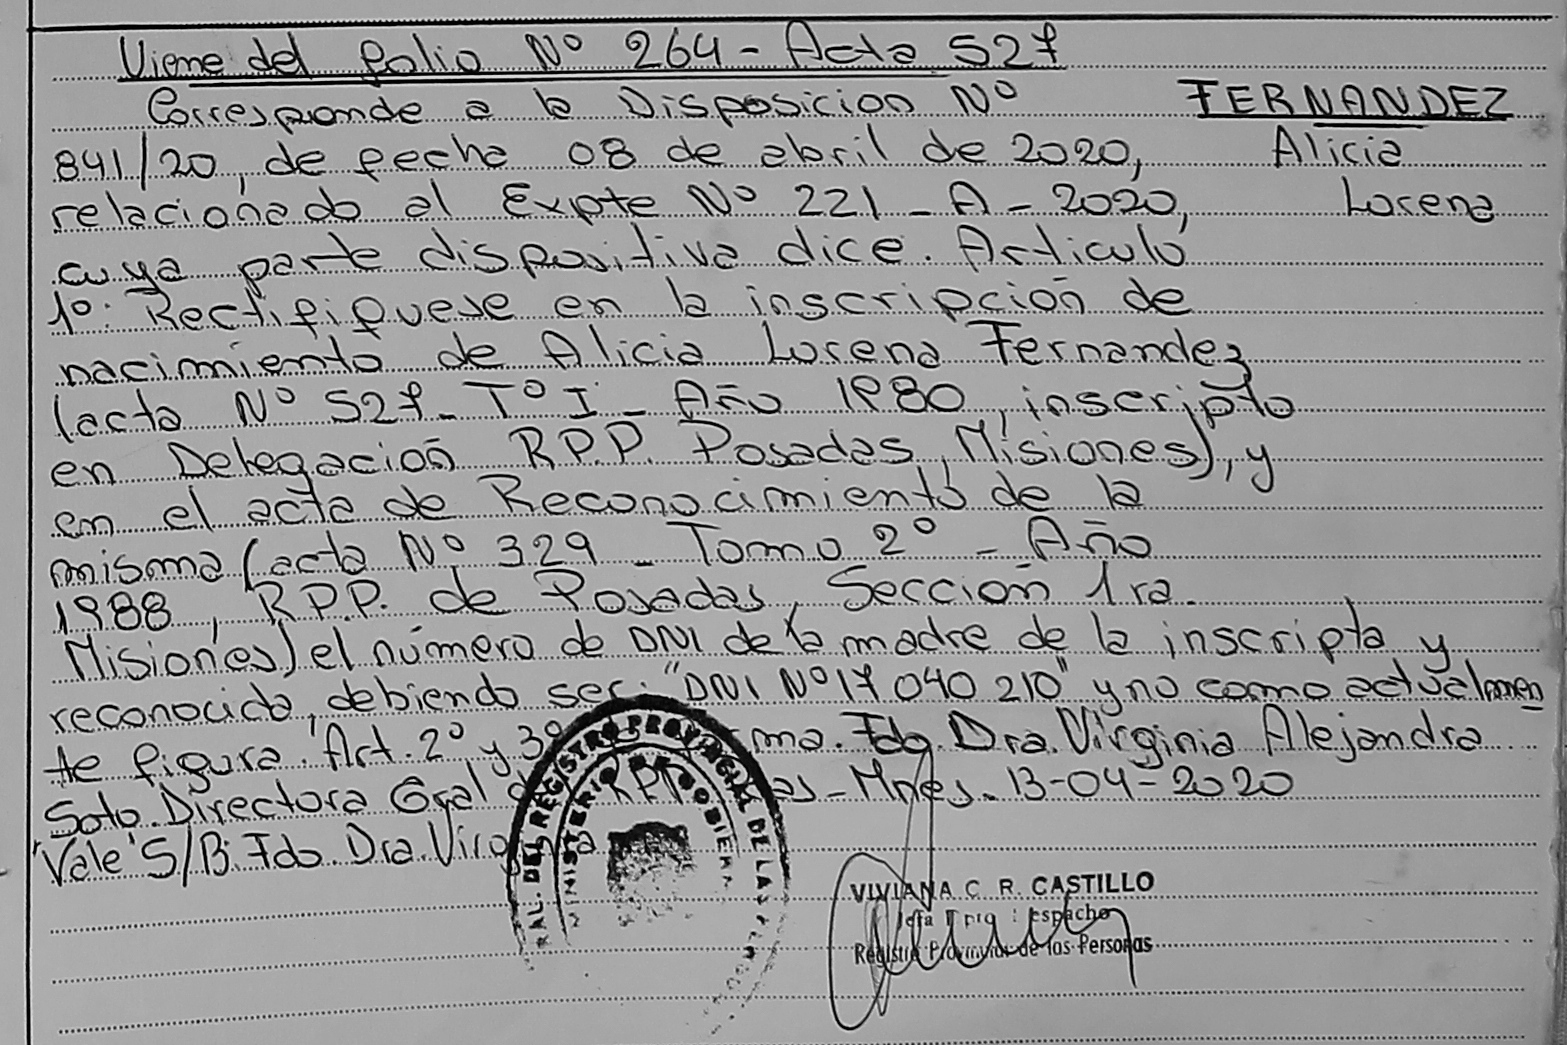 Viene del folio Nº 264 - Acta 527
Corresponde a la Disposicion Nº
FERNANDEZ
841/20, de fecha 08 de abril de 2020,
Alicia
relacionado al Expte Nº 221 - A - 2020,
Lorena
cuya parte dispositiva dice. Articulo
1º: Rectifiquese en la inscripción de
nacimiento de Alicia Lorena Fernandez
(acta Nº 527 - Tº I - Año 1980, inscripto
en Delegación R.P.P. Posadas, Misiones), y
en el acta de Reconocimiento de la
misma (acta Nº 329 - Tomo 2º - Año
1988, R.P.P. de Posadas, Sección 1ra.
Misiones) el número de DNI de la madre de la inscripta y
reconocida, debiendo ser: "DNI Nº 17 040 210" y no como actualmen
te figura. Art. 2º y 3º ma. Fdo. Dra. Virginia Alejandra
Soto. Directora Gral RPP as - Mnes. 13-04-2020
Vale S/B. Fdo. Dra.
RAL. DEL REGISTRO PROVINCIAL DE LAS
MINISTERIO DE GOBIERN
VIVIANA C. R. CASTILLO
Jefa espacho
Registro Provincial de las Personas